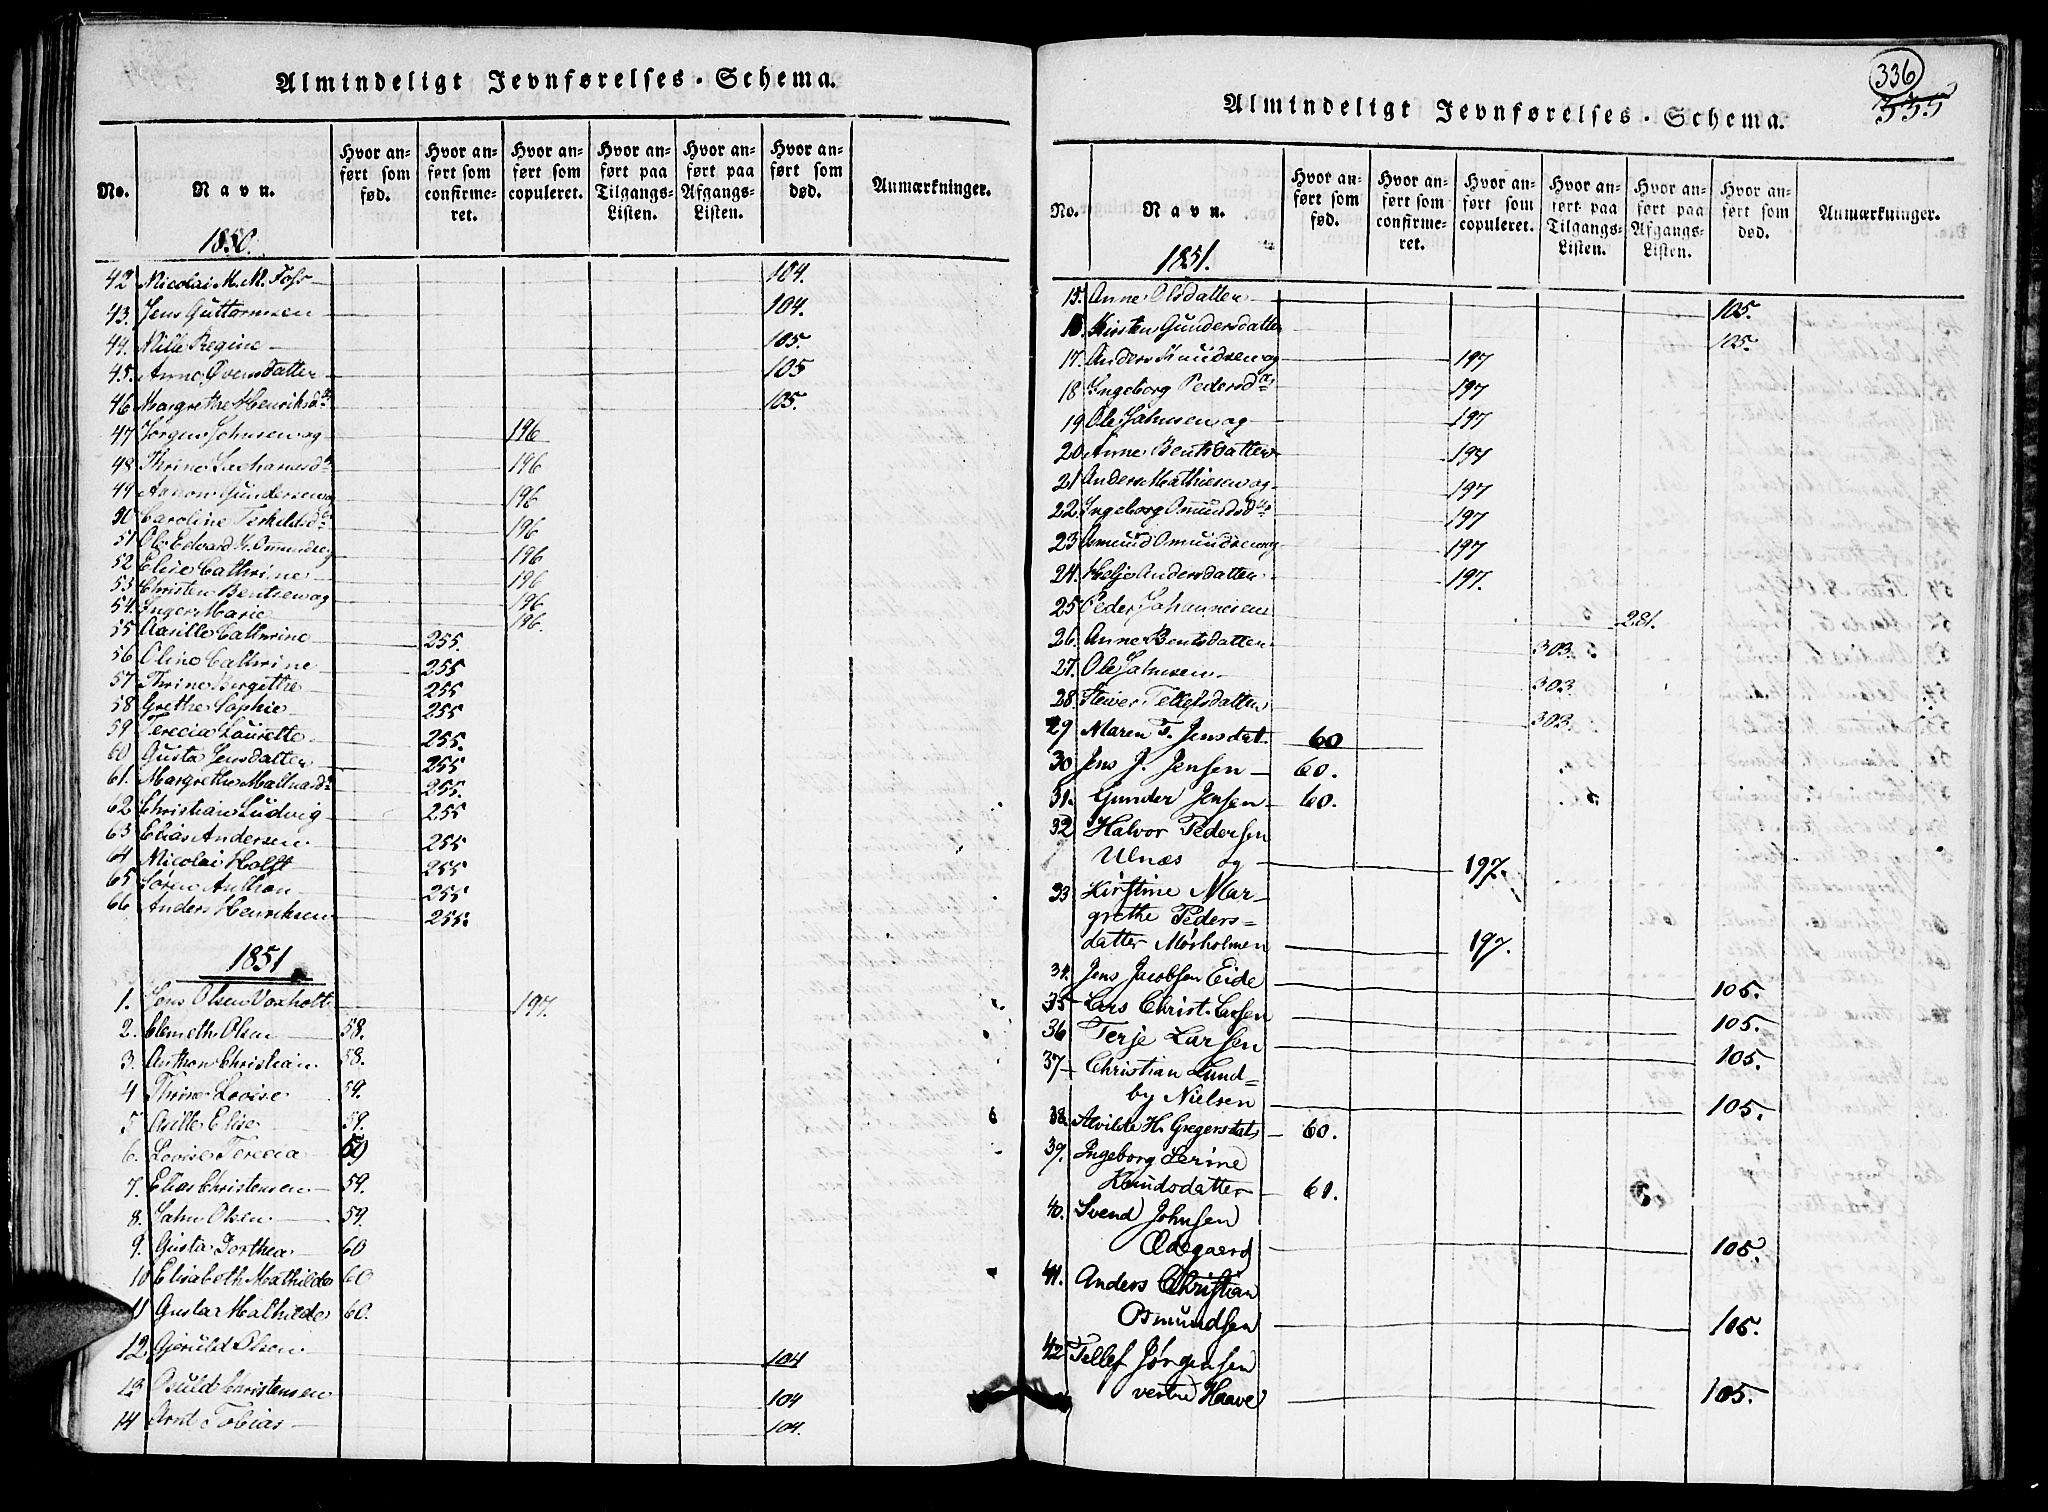 Almindeligt Jevnførelses-Schema.
No. Navn. Hvor anført som fød. Hvor anført som confirmeret. Hvor anført som copuleret. Hvor anført paa Tilgangs-Listen. Hvor anført paa Afgangs-Listen. Hvor anført som død. Anmærkninger.
1850.
42 Nicolai M. M. Foss 104.
43. Jens Guttormsen 104.
44. Nille Regine 105.
45. Anne Øvensdatter 105
46 Margrethe Henriksdr 105.
47 Jørgen Johnsen og 196
48 Thrine Zachariasdr 196
49 Aanon Gundersen og 196
50 Caroline Terkildsdr 196
51 Ole Edvard K. Omundsen og 196
52 Elise Cathrine 196
53 Christen Bentsen og 196
54. Inger Marie 196.
55 Aasille Cathrine 255.
56 Oline Cathrine 255
57 Thrine Bergethe 255
58 Grethe Sophie 255
59 Terecia Laurette 255.
60 Gusta Jensdatter 255
61. Margrethe 255.
62 Christian Ludvig 255
63 Elias Andersen 255
64 Nicolai Holst 255
65 Søren Anthon 255
66 Anders Henriksen 255.
1851
1. Jens Olsen Voxholt 197.
2. Clemeth Olsen 58.
3. Anthon Christian 58.
4 Thrine Lovise 59.
5 Aselle Elise 59.
6. Lovise Terecia 59
7. Elias Christensen 59.
8. Jahn Olsen 59.
9. Gusta Dorthea 60
10 Elisabeth Mathilde 60
11 Gusta Mathilde 60.
12 Gjeruld Olsen 104
13 Osuld Christensen 104
14 Arnt Tobias 104.
336
335
Almindeligt Jevnførelses-Schema.
No. Navn. Hvor anført som fød. Hvor anført som confirmeret. Hvor anført som copuleret. Hvor anført paa Tilgangs-Listen. Hvor anført paa Afgangs-Listen. Hvor anført som død. Anmærkninger.
1851.
15. Anne Olsdatter 105.
16. Kirsten Gundersdatter 105.
17. Anders Knudsen og 197
18 Ingeborg Pedersdr 197
19 Ole Jahnsen og 197
20 Anne Bentsdatter 197
21 Anders Mathiesen og 197
22. Ingeborg Omundsdr 197
23 Omund Omundsen og 197
24. Helje Andersdatter 197.
25 Peder Johannesen 281.
26. Anne Bentsdatter 303.
27. Ole Jahnsen 303
28. Siever Tellefsdatter 303
29 Maren T. Jensdat. 60
30 Jens J. Jensen 60.
31. Gunder Jensen 60.
32 Halvor Pedersen
Ulnæs og 197.
33 Kirstine Mar-
grethe Peders-
datter Mørholmen 197.
34. Jens Jacobsen Eide 105.
35 Lars Christ. Larsen 105.
36 Terje Larsen 105.
37 Christian Lund-
by Nielsen 105.
38. Alvilde H. Gregersdat. 60.
39. Ingeborg Serine
Knudsdatter 61.
40. Svend Johnsen
Ødegaard 105.
41. Anders Christian
Osmundsen 105.
42 Tellef Jørgensen
vestre Haave 105.